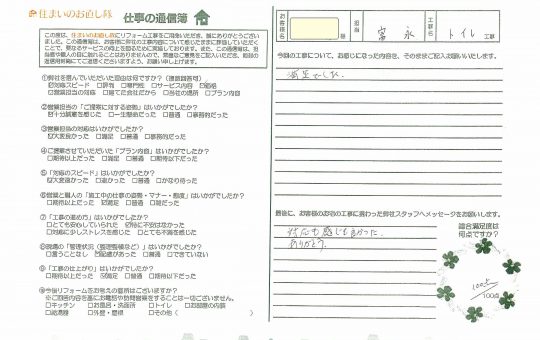 住まいのお直し隊
仕事の通信簿
この度は、住まいのお直し隊にリフォーム工事をご用命いただき、誠にありがとうござい
ました。
①弊社を選んでいただいた理由は何ですか?(複数回答可)
☑対応スピード □評判 □専門性 □サービス内容 ☑価格
□商談担当の対応 □建てた会社だから □当社の場所 □プラン内容
②営業担当の「ご提案に対する姿勢」はいかがでしたか?
☑十分誠意を感じた □一生懸命だった □普通 □事務的だった
③営業担当の対応はいかがでしたか?
☑大変良かった □満足 □普通 □事務的だった
④ご提案させていただいた「プラン内容」はいかがでしたか?
□期待以上だった □満足 □普通 □期待以下だった
⑤「対応のスピード」はいかがでしたか?
☑大変速かった □速かった □普通 □かなり待った
⑥監督と職人の「施工中の仕事の姿勢・マナー・態度」はいかがでしたか?
□期待以上だった ☑満足 □普通 □期待以下だった
⑦「工事の進め方」はいかがでしたか?
□とても安心していられた ☑特に不安はなかった
□対応に少しストレスを感じた □とても不満を感じた
⑧現場の「管理状況(整理整頓など)」はいかがでしたか?
□言うことなし ☑配慮があった □普通 □できていない
⑨「工事の仕上がり」はいかがでしたか?
□期待以上だった ☑満足 □普通 □期待以下だった
⑩今後リフォームをお考えの箇所はございますか?
※ご回答内容を基にお電話や訪問営業をすることは一切ございません。
□キッチン □お風呂・洗面所 □トイレ □お部屋の内装
□給湯器 □外壁・屋根 □その他( )
お客様名
様
担当
富永
工事名
トイレ
工事
今回の工事について、お感じになった内容を、そのままご記入お願いいたします。
満足でした。
最後に、お客様のお宅の工事に携わった弊社スタッフへメッセージをお願いします。
対応も感じも良かった。
ありがとう。
総合満足度は
何点ですか?
100点
/100点